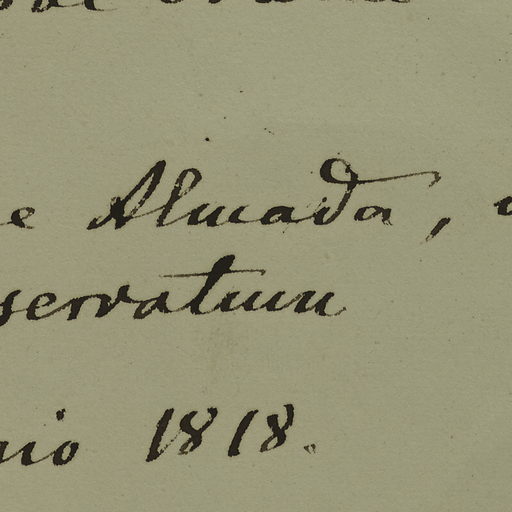 e Almada,
servatum
nio 1818.